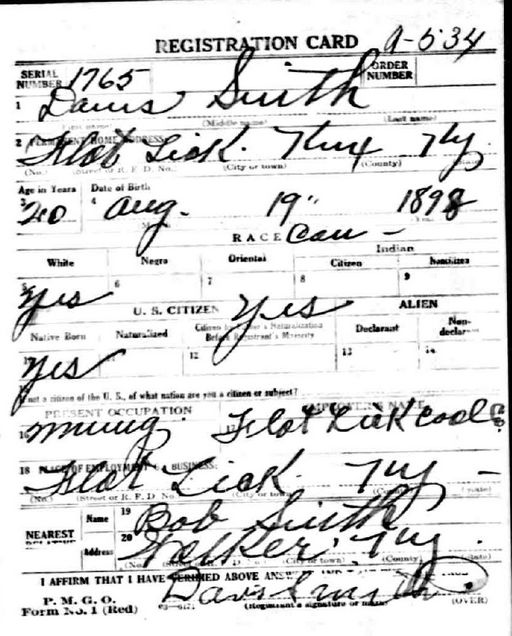 REGISTRATION CARD A-534
SERIAL NUMBER 1765 ORDER NUMBER
1 Davis Smith
(Middle name) (Last name)
2 PERMANENT HOME ADDRESS:
Flat Lick. Knox Ky
(No.) (Street or R. F. D. No.) (City or town) (County)
Age in Years Date of Birth
3 20 4 Aug. 19" 1898
RACE Cau -
White Negro Oriental Indian
Citizen Noncitizen
5 6 7 8 9
yes
U. S. CITIZEN yes ALIEN
Native Born Naturalized Citizen by Father's Naturalization Before Registrant's Majority Declarant Non-declarant
yes 12 13 14
If not a citizen of the U. S., of what nation are you a citizen or subject?
PRESENT OCCUPATION EMPLOYER'S NAME
16 Mining Flat Lick Coal Co
18 PLACE OF EMPLOYMENT OR BUSINESS:
Flat Lick Ky -
(No.) (Street or R. F. D. No.) (City or town) (County) (State)
NEAREST RELATIVE
Name 19 Bob Smith
Address 20 Walker, Ky.
(No.) (City or town) (County) (State)
I AFFIRM THAT I HAVE VERIFIED ABOVE
P. M. G. O.
Form No. 1 (Red) Davis Smith
(Registrant's signature or mark) (OVER)